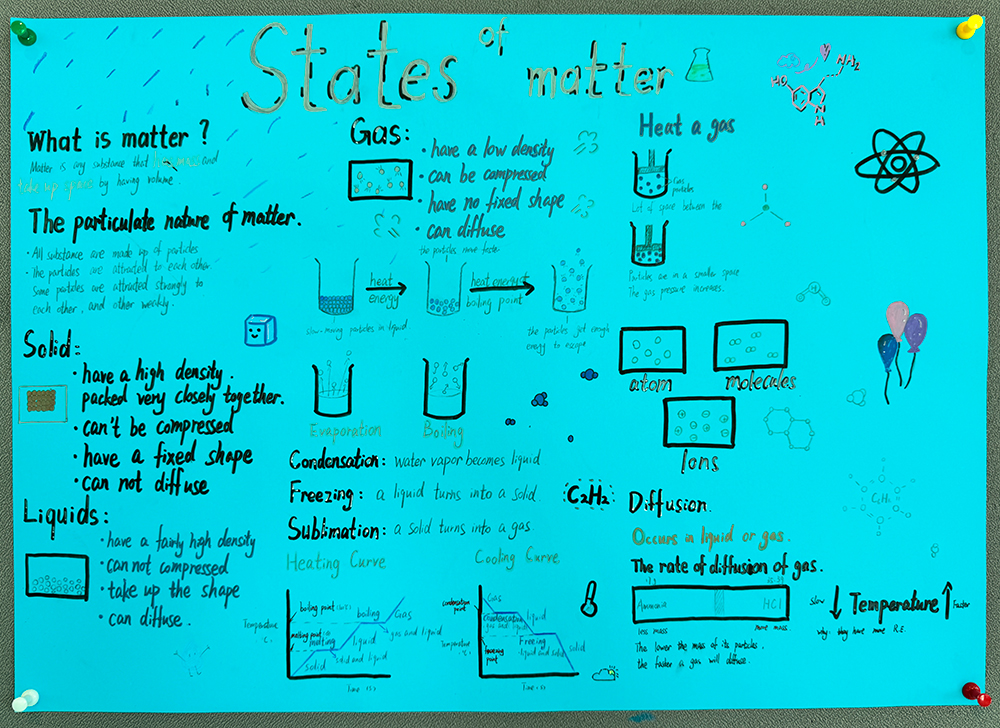 States of matter
What is matter ?
Matter is any substance that have mass and
take up space by having volume.
The particulate nature of matter.
· All substance are made up of particles
· The particles are attracted to each other
Some particles are attracted strongly to
each other, and other weakly.
Solid:
· have a high density.
packed very closely together.
· can't be compressed
· have a fixed shape
· can not diffuse
Liquids:
· have a fairly high density
· can not compressed
· take up the shape
· can diffuse.
Gas:
· have a low density
· can be compressed
· have no fixed shape
· can diffuse
the particles move faster
heat
energy
heat energy
boiling point
slow-moving particles in liquid
the particles get enough
energy to escape
Evaporation
Boiling
Condensation: water vapor becomes liquid
Freezing: a liquid turns into a solid
Sublimation: a solid turns into a gas
C2H2
Heating Curve
Temperature
°C
boiling point
melting point
boiling
Gas
gas and liquid
melting
liquid
solid and liquid
solid
Time (s)
Cooling Curve
condensation
point
Temperature
Gas
Condensation
gas and liquid
liquid
freezing
point
Freezing
liquid and solid
solid
Time (s)
Heat a gas
Gas
particles
Lot of space between the
Particles are in a smaller space
The gas pressure increases.
HO
NH2
N
H
atom
molecules
Ions
C6H6
Diffusion.
Occurs in liquid or gas.
The rate of diffusion of gas.
Ammonia
HCl
less mass
more mass
The lower the mass of its particles.
the faster a gas will diffuse.
Slow
Temperature
Faster
why: they have more K.E.